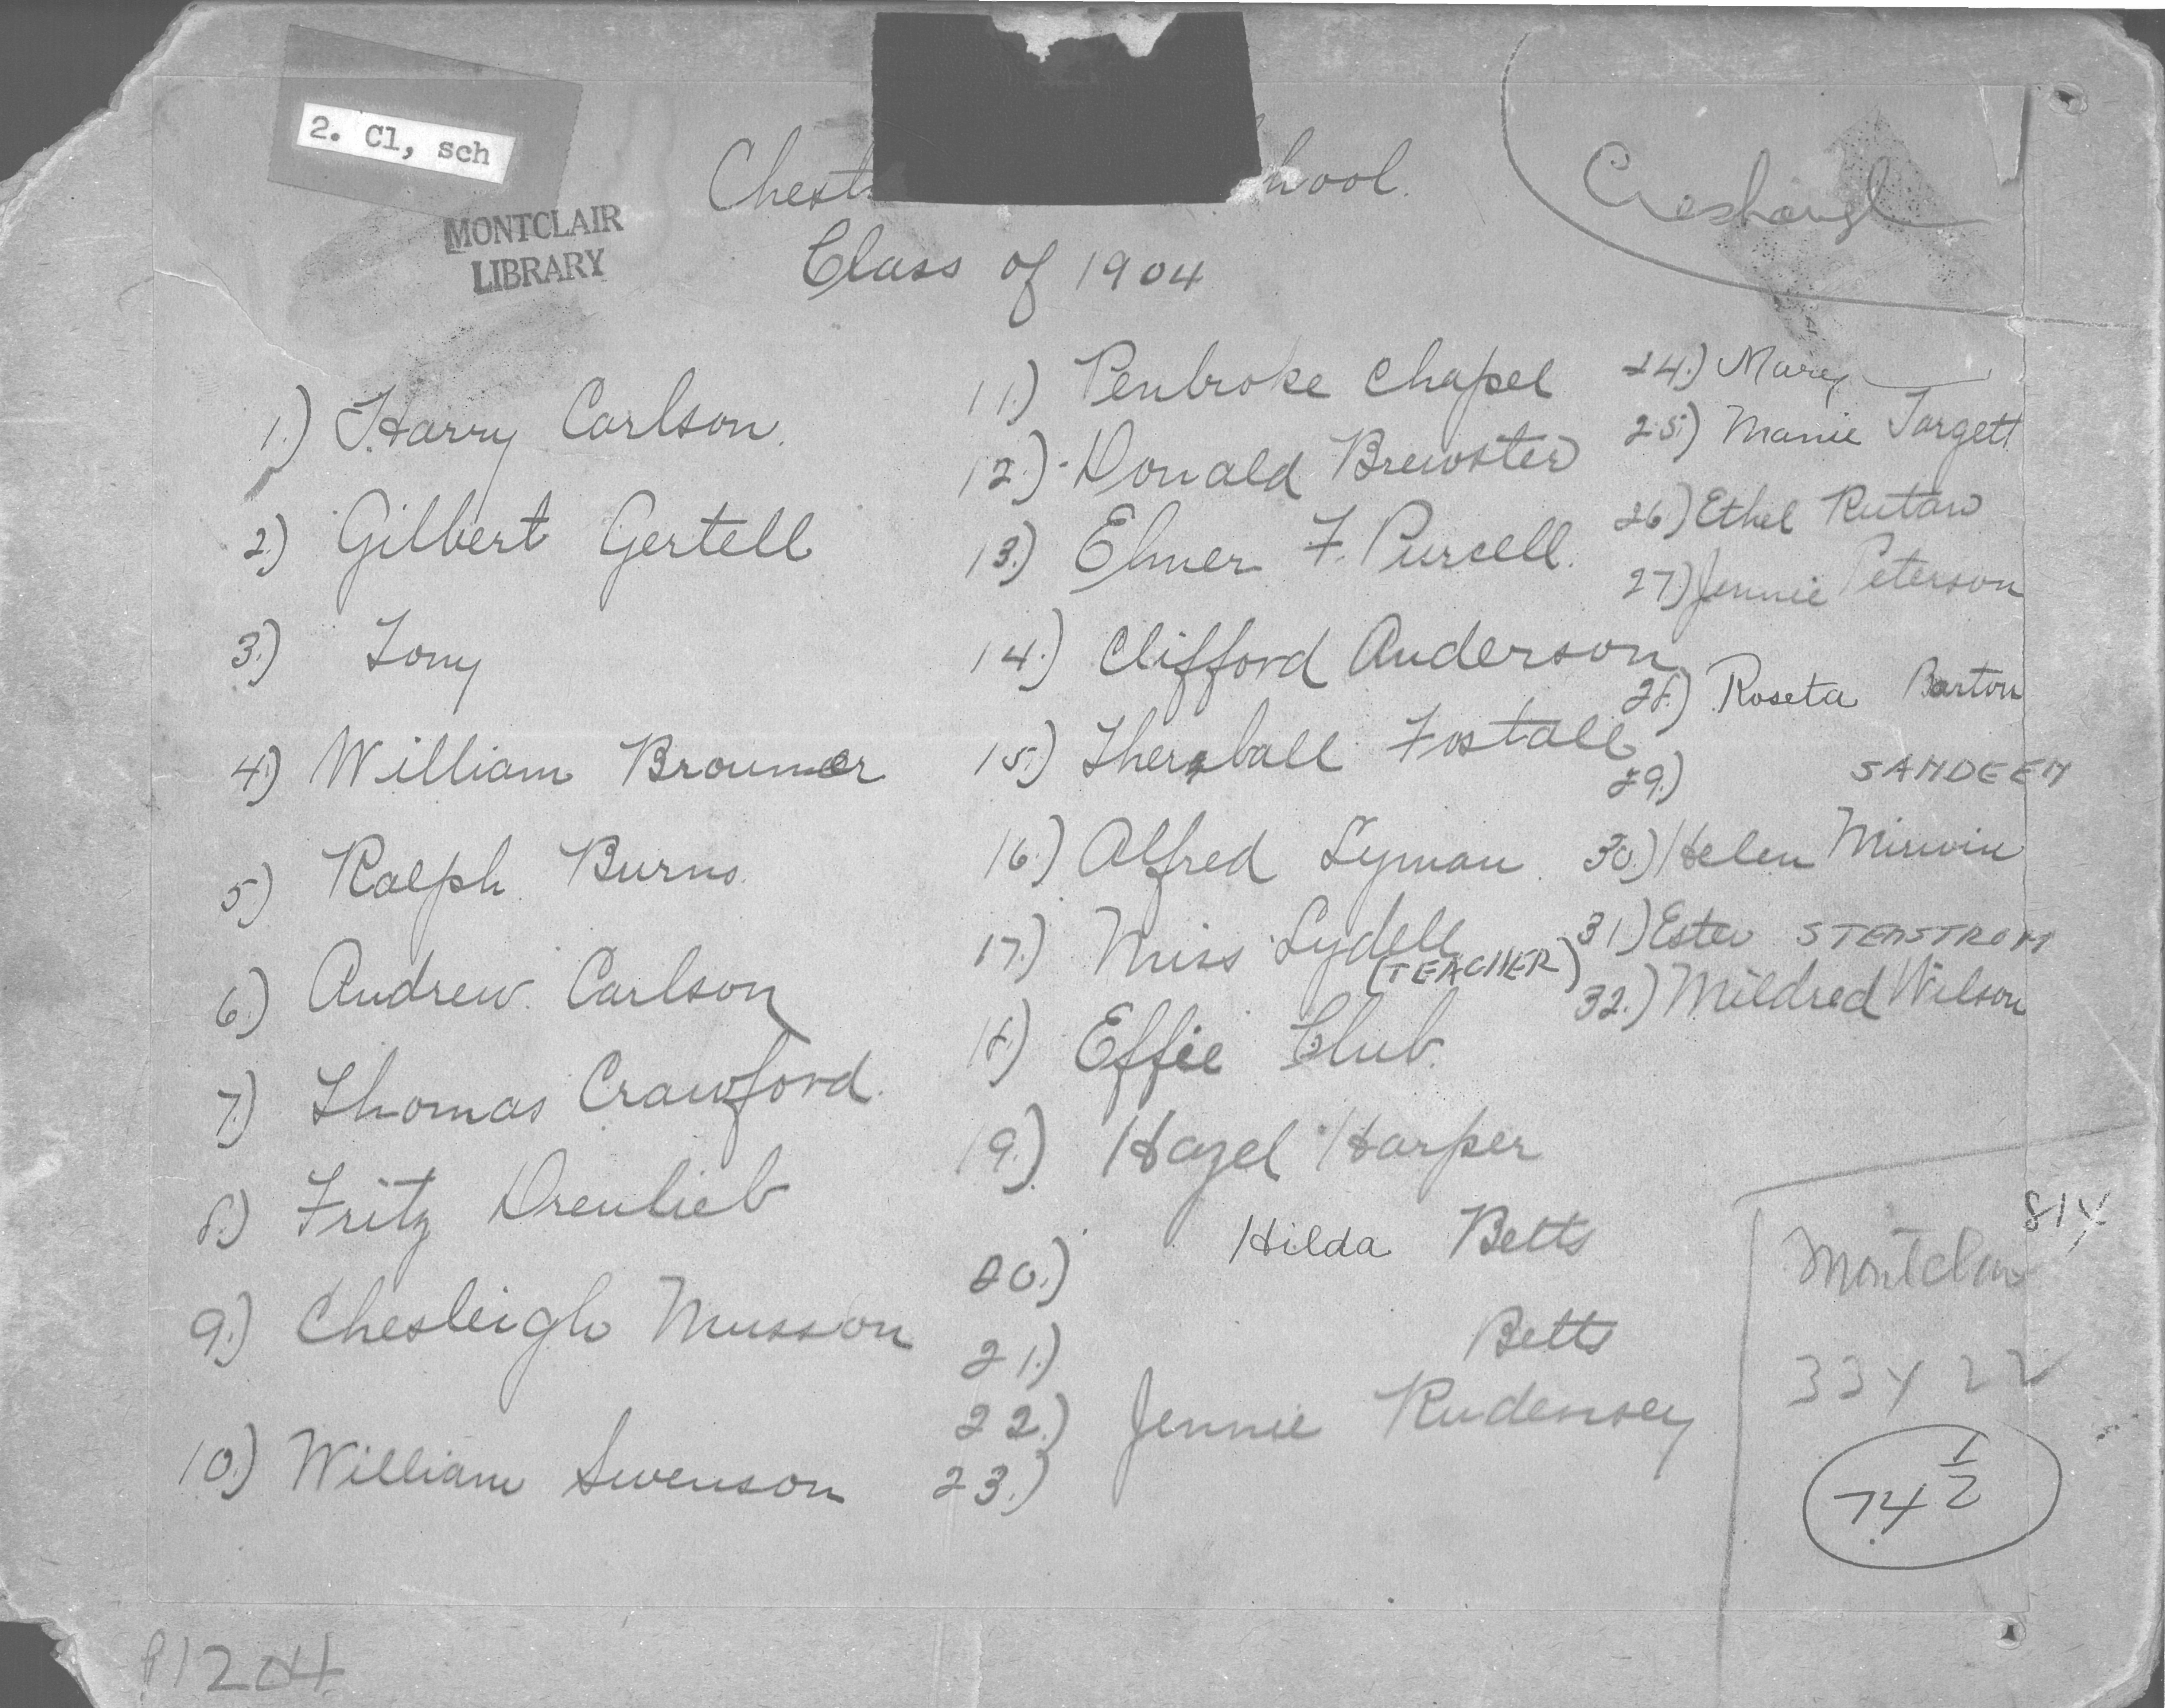 2. Cl, sch
MONTCLAIR
LIBRARY
Chest hool.
Class of 1904
1.) Harry Carlson.
2.) Gilbert Gertell
3.) Tony
4.) William Broumer
5.) Ralph Burns
6.) Andrew Carlson
7.) Thomas Crawford.
8.) Fritz Dreulieb
9.) Chesleigh Musson
10.) William Swenson
11.) Penbroke Chapel
12.) Donald Brewster
13.) Elmer F. Purcell.
14.) Clifford Anderson
15.) Fostall
16.) Alfred Lyman
17.) Miss Lydell
(TEACHER)
18.) Effie Club.
19.) Hazel Harper
20.) Hilda Betts
21.) Betts
22.) Jennie
23.)
24.) Mary
25.) Mamie Targett
26.) Ethel Rutan
27.) Jennie Peterson
28.) Roseta Barton
29.) SANDEEN
30.) Helen Mirwin
31.) Ester STENSTROM
32.) Mildred Wilson
Montclair
33 Y 22
74 1/2
P1204